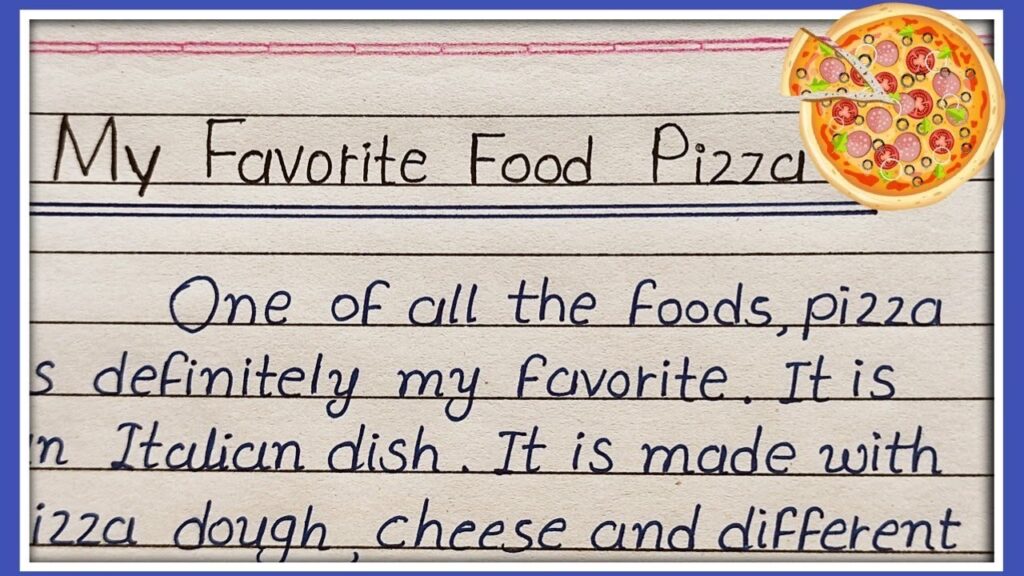 My Favorite Food Pizza
One of all the foods, pizza
s definitely my favorite. It is
n Italian dish. It is made with
izza dough, cheese and different